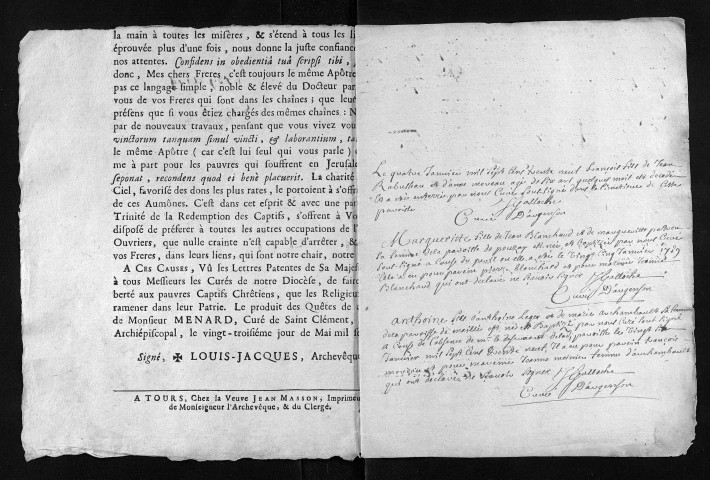 la main à toutes les misères, & s'étend à tous les
éprouvée plus d'une fois, nous donne la juste confiance
nos attentes. Confidens in obedientiâ tuâ scripsi tibi,
donc, Mes chers Freres, c'est toujours le même Apôtre
pas ce langage simple, noble & élevé du Docteur par
vous de vos Freres qui sont dans les chaînes; que leur
présens que si vous étiez chargés des mêmes chaines: N
par de nouveaux travaux, pensant que vous vivez vou
vinctorum tanquam simul vincti, & laborantium, ta
le même Apôtre (car c'est lui seul qui vous parle)
me à part pour les pauvres qui souffrent en Jerusale
seponat, recondens quod ei benè placuerit. La charité
Ciel, favorisé des dons les plus rates, le portoient à s'offr
de ces Aumônes. C'est dans cet esprit & avec une par
Trinité de la Redemption des Captifs, s'offrent à Vo
disposé de préférer à toutes les autres occupations de l'
Ouvriers, que nulle crainte n'est capable d'arrêter, &
vos Freres, dans leurs liens, qui sont notre chair, notre
A CES CAUSES, Vû les Lettres Patentes de Sa Majes
à tous Messieurs les Curés de notre Diocèse, de faire
berté aux pauvres Captifs Chrêtiens, que les Religieux
ramener dans leur Patrie. Le produit des Quêtes de
de Monsieur MENARD, Curé de Saint Clément,
Archiépiscopal, le vingt-troisiéme jour de Mai mil s
Signé, ✠ LOUIS-JACQUES, Archevêque
A TOURS, Chez la Veuve JEAN MASSON, Imprimeu
de Monseigneur l'Archevêque, & du Clergé.
Le quatre Janvier mil sept Cens trente neuf François fils de Jean
Rabusseau et d'anne moreau agé de
a été enterrée par nous Curé soussigné dans le Cimetiere de cette
paroisse
Galloche
Curé D'angenson
Marguerite fille de Jean Blanchard et de marguerite
sa femme de la paroisse de pouzay est née et Baptizée par nous Curé
soussigné le Vingt Cinq Janvier 1739
Elle a eu pour parein pierre Blanchard et pour mareine
Blanchard qui ont declaré ne sçavoir signer Galloche
Curé D'angenson
Anthoine fils d'anthoine Leger et de marie archambault sa femme
de la paroisse de noüille est né et Baptizé par nous Curé soussigné
a Cause de
Janvier mil sept Cens trente neuf. Il a eu pour parein françois
et pour mareine Jeanne femme d'archambault
qui ont declarés ne sçavoir signer Galloche
Curé D'angenson